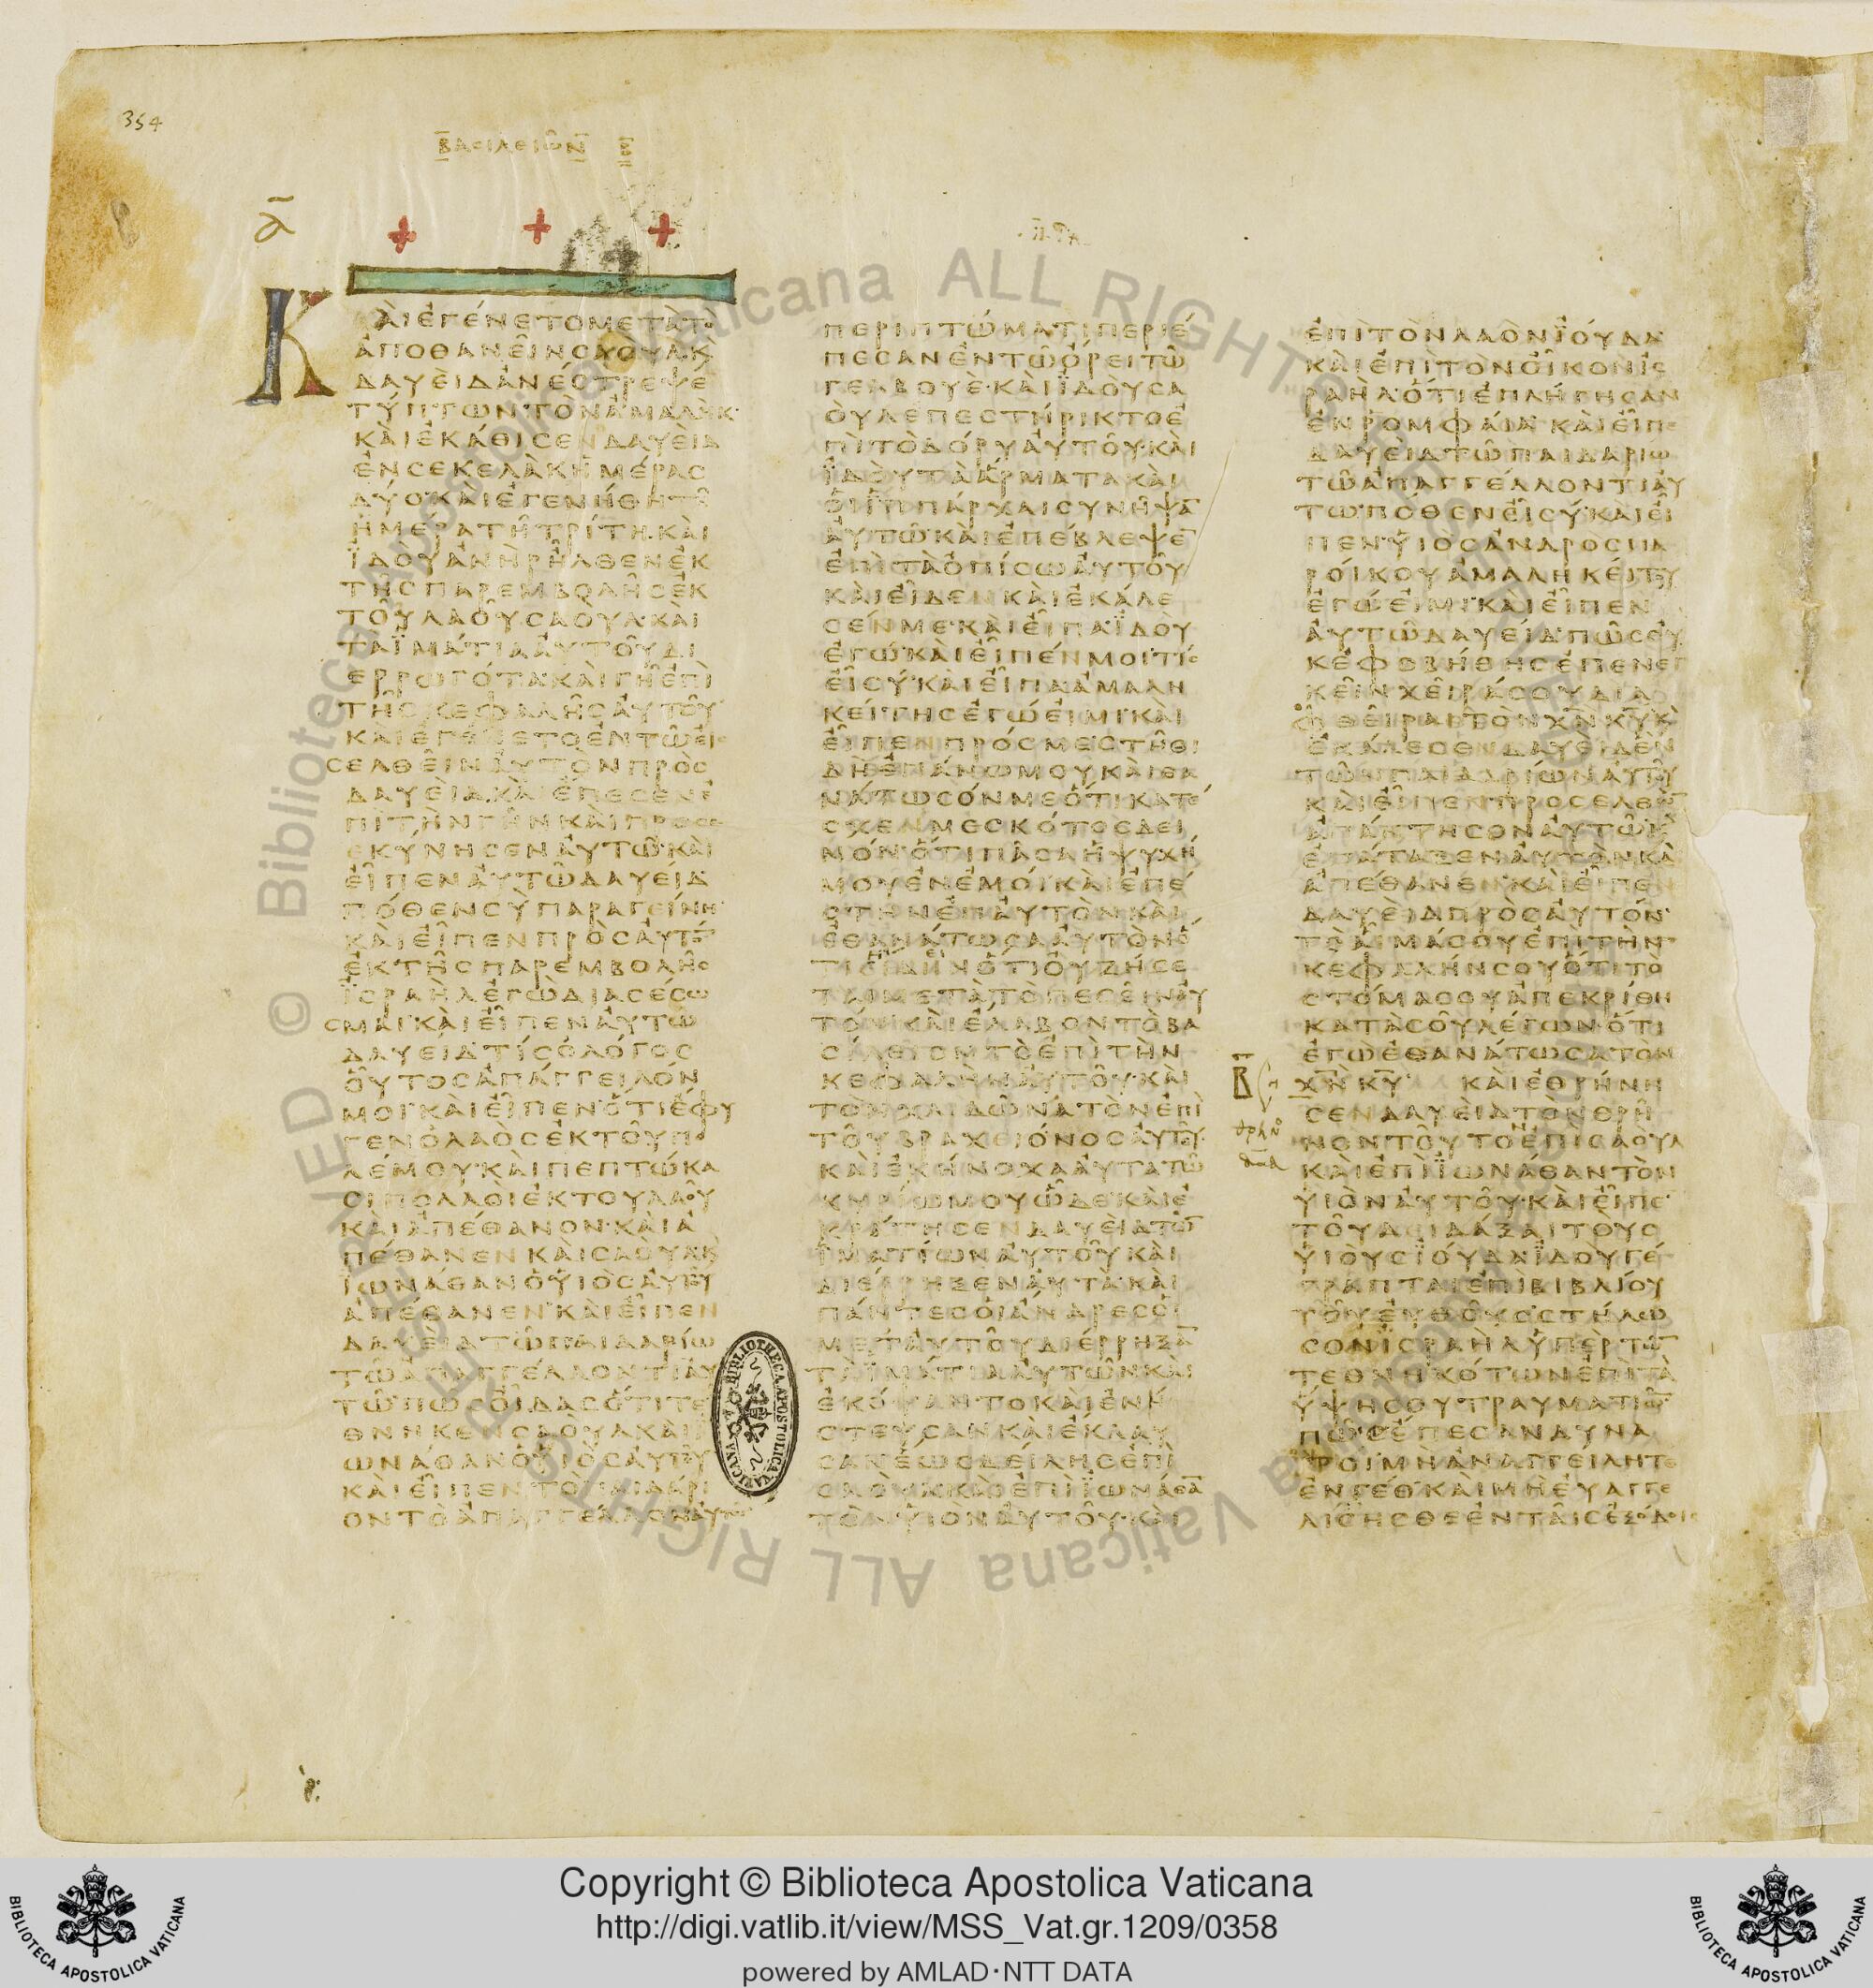 354
ΒΑСΙΛΕΙΩΝ Β
Α
ΚΑΙΕΓΕΝΕΤΟΜΕΤΑΤΟ
ΑΠΟΘΑΝΕΙΝСΑΟΥΛΚΑΙ
ΔΑΥΕΙΔΑΝΕСΤΡΕΨΕ
ΤΥΠΤΩΝΤΟΝΑΜΑΛΗΚ
ΚΑΙΕΚΑΘΙСΕΝΔΑΥΕΙΔ
ΕΝСΕΚΕΛΑΚΗΜΕΡΑС
ΔΥΟΚΑΙΕΓΕΝΗΘΗΤΗ
ΗΜΕΡΑΤΗΤΡΙΤΗΚΑΙ
ΪΔΟΥΑΝΗΡΗΛΘΕΝΕΚ
ΤΗСΠΑΡΕΜΒΟΛΗСΕΚ
ΤΟΥΛΑΟΥСΑΟΥΛΚΑΙ
ΤΑΪΜΑΤΙΑΑΥΤΟΥΔΙ
ΕΡΡΩΓΟΤΑΚΑΙΓΗΕΠΙ
ΤΗСΚΕΦΑΛΗСΑΥΤΟΥ
ΚΑΙΕΓΕΝΕΤΟΕΝΤΩΕΙ
СΕΛΘΕΙΝΑΥΤΟΝΠΡΟС
ΔΑΥΕΙΔΚΑΙΕΠΕСΕΝΕ
ΠΙΤΗΝΓΗΝΚΑΙΠΡΟСΕ
ΕΚΥΝΗСΕΝΑΥΤΩΚΑΙ
ΕΙΠΕΝΑΥΤΩΔΑΥΕΙΔ
ΠΟΘΕΝСΥΠΑΡΑΓΕΙΝΗ
ΚΑΙΕΙΠΕΝΠΡΟСΑΥΤΟ̅
ΕΚΤΗСΠΑΡΕΜΒΟΛΗС
ΪСΡΑΗΛΕΓΩΔΙΑСΕСΩ
СΜΑΙΚΑΙΕΙΠΕΝΑΥΤΩ
ΔΑΥΕΙΔΤΙСΟΛΟΓΟС
ΟΥΤΟСΑΠΑΓΓΕΙΛΟΝ
ΜΟΙΚΑΙΕΙΠΕΝΟΤΙΕΦΥ
ΓΕΝΟΛΑΟСΕΚΤΟΥΠΟ
ΛΕΜΟΥΚΑΙΠΕΠΤΩΚΑ
СΙΠΟΛΛΟΙΕΚΤΟΥΛΑΟΥ
ΚΑΙΑΠΕΘΑΝΟΝΚΑΙΑ
ΠΕΘΑΝΕΝΚΑΙСΑΟΥΛΚΑΙ
ΪΩΝΑΘΑΝΟΥΙΟСΑΥΤΟΥ
ΑΠΕΘΑΝΕΝΚΑΙΕΙΠΕΝ
ΔΑΥΕΙΔΤΩΠΑΙΔΑΡΙΩ
ΤΩΑΠΑΓΓΕΛΛΟΝΤΙΑΥ
ΤΩΠΩСΟΙΔΑСΟΤΙΤΕ
ΘΝΗΚΕΝСΑΟΥΛΚΑΙΪ
ΩΝΑΘΑΝΟΥΙΟСΑΥΤΟΥ
ΚΑΙΕΙΠΕΝΤΟΠΑΙΔΑΡΙ
ΟΝΤΟΑΠΑΓΓΕΛΛΟΝΑΥΤΩ
ΠΕΡΙΠΤΩΜΑΤΙΠΕΡΙΕ
ΠΕСΑΝΕΝΤΩΟΡΕΙΤΩ
ΓΕΛΒΟΥΕΚΑΙΪΔΟΥСΑ
ΟΥΛΕΠΕСΤΗΡΙΚΤΟΕ
ΠΙΤΟΔΟΡΥΑΥΤΟΥΚΑΙ
ΪΔΟΥΤΑΑΡΜΑΤΑΚΑΙ
ΟΙΪΠΠΑΡΧΑΙСΥΝΗΨΑ̅
ΑΥΤΩΚΑΙΕΠΕΒΛΕΨΕ̅
ΕΠΙΤΑΟΠΙСΩΑΥΤΟΥ
ΚΑΙΕΙΔΕΝΚΑΙΕΚΑΛΕ
СΕΝΜΕΚΑΙΕΙΠΑΪΔΟΥ
ΕΓΩΚΑΙΕΙΠΕΝΜΟΙΤΙС
ΕΙСΥΚΑΙΕΙΠΑΑΜΑΛΗ
ΚΕΙΤΗСΕΓΩΕΙΜΙΚΑΙ
ΕΙΠΕΝΠΡΟСΜΕСΤΗΘΙ
ΔΗΕΠΑΝΩΜΟΥΚΑΙΘΑ
ΝΑΤΩСΟΝΜΕΟΤΙΚΑΤΕ
СΧΕΝΜΕСΚΟΤΟСΔΕΙ
ΝΟΝΟΤΙΠΑСΑΗΨΥΧΗ
ΜΟΥΕΝΕΜΟΙΚΑΙΕΠΕ
СΤΗΝΕΠΑΥΤΟΝΚΑΙ
ΕΘΑΝΑΤΩСΑΑΥΤΟΝΟ
ΤΙΗΔΕΙΝΟΤΙΟΥΖΗСΕ
ΤΑΙΜΕΤΑΤΟΠΕСΕΙΝΑΥ
ΤΟΝΚΑΙΕΛΑΒΟΝΤΟΒΑ
СΙΛΕΙΟΝΤΟΕΠΙΤΗΝ
ΚΕΦΑΛΗΝΑΥΤΟΥΚΑΙ
ΤΟΝΧΛΙΔΩΝΑΤΟΝΕΠΙ
ΤΟΥΒΡΑΧΕΙΟΝΟСΑΥΤΟΥ
ΚΑΙΕΝΗΝΟΧΑΑΥΤΑΤΩ
ΚΥΡΙΩΜΟΥΩΔΕΚΑΙΕ
ΚΡΑΤΗСΕΝΔΑΥΕΙΔΤΩ̅
ΪΜΑΤΙΩΝΑΥΤΟΥΚΑΙ
ΔΙΕΡΡΗΞΕΝΑΥΤΑΚΑΙ
ΠΑΝΤΕСΟΙΑΝΔΡΕСΟΙ
ΜΕΤΑΥΤΟΥΔΙΕΡΡΗΞΑ̅
ΤΑΪΜΑΤΙΑΑΥΤΩΝΚΑΙ
ΕΚΟΨΑΝΤΟΚΑΙΕΝΗ
СΤΕΥСΑΝΚΑΙΕΚΛΑΥ
СΑΝΕΩСΔΕΙΛΗСΕΠΙ
СΑΟΥΛΚΑΙΕΠΙΪΩΝΑΘΑ̅
ΤΟΝΥΙΟΝΑΥΤΟΥΚΑΙ
ΕΠΙΤΟΝΛΑΟΝΪΟΥΔΑ
ΚΑΙΕΠΙΤΟΝΟΙΚΟΝΙС
ΡΑΗΛΟΤΙΕΠΛΗΓΗСΑΝ
ΕΝΡΟΜΦΑΙΑΚΑΙΕΙΠΕ
ΔΑΥΕΙΔΤΩΠΑΙΔΑΡΙΩ
ΤΩΑΠΑΓΓΕΛΛΟΝΤΙΑΥ
ΤΩΠΟΘΕΝΕΙСΥΚΑΙΕΙ
ΠΕΝΥΙΟСΑΝΔΡΟСΠΑ
ΡΟΙΚΟΥΑΜΑΛΗΚΕΙΤΟΥ
ΕΓΩΕΙΜΙΚΑΙΕΙΠΕΝ
ΑΥΤΩΔΑΥΕΙΔΠΩСΟΥ
ΚΕΦΟΒΗΘΗСΕΠΕΝΕΓ
ΚΕΙΝΧΕΙΡΑСΟΥΔΙΑ
ΦΘΕΙΡΑΙΤΟΝΧ̅Ν̅Κ̅Υ̅ΚΑΙ
ΕΚΑΛΕСΕΝΔΑΥΕΙΔΕΝ
ΤΩΝΠΑΙΔΑΡΙΩΝΑΥΤΟΥ
ΚΑΙΕΙΠΕΝΠΡΟСΕΛΘΩ̅
ΑΠΑΝΤΗСΟΝΑΥΤΩΚΑΙ
ΕΠΑΤΑΞΕΝΑΥΤΟΝΚΑΙ
ΑΠΕΘΑΝΕΝΚΑΙΕΙΠΕΝ
ΔΑΥΕΙΔΠΡΟСΑΥΤΟΝ
ΤΟΑΙΜΑСΟΥΕΠΙΤΗΝ
ΚΕΦΑΛΗΝСΟΥΟΤΙΤΟ
СΤΟΜΑСΟΥΑΠΕΚΡΙΘΗ
ΚΑΤΑСΟΥΛΕΓΩΝΟΤΙ
ΕΓΩΕΘΑΝΑΤΩСΑΤΟΝ
Β Χ̅Ν̅Κ̅Υ̅ ΚΑΙΕΘΡΗΝΗ
СΕΝΔΑΥΕΙΔΤΟΝΘΡΗ
ΝΟΝΤΟΥΤΟΝΕΠΙСΑΟΥΛ
ΚΑΙΕΠΙΪΩΝΑΘΑΝΤΟΝ
ΥΙΟΝΑΥΤΟΥΚΑΙΕΙΠΕ
ΤΟΥΔΙΔΑΞΑΙΤΟΥС
ΥΙΟΥСΪΟΥΔΑΪΔΟΥΓΕ
ΓΡΑΠΤΑΙΕΠΙΒΙΒΛΙΟΥ
ΤΟΥΕΥΘΟΥССΤΗΛΩ
СΟΝΪСΡΑΗΛΥΠΕΡΤΩ̅
ΤΕΘΝΗΚΟΤΩΝΕΠΙΤΑ
ΥΨΗСΟΥΤΡΑΥΜΑΤΙΩ̅
ΠΩСΕΠΕСΑΝΔΥΝΑ
ΤΟΙΜΗΑΝΑΓΓΕΙΛΗΤΕ
ΕΝΓΕΘΚΑΙΜΗΕΥΑΓΓΕ
ΛΙСΗСΘΕΕΝΤΑΙСΕΞΟΔΟΙС
BIBLIOTHECA APOSTOLICA VATICANA
© Biblioteca Apostolica Vaticana ALL RIGHTS RESERVED
Copyright © Biblioteca Apostolica Vaticana
http://digi.vatlib.it/view/MSS_Vat.gr.1209/0358
powered by AMLAD·NTT DATA
BIBLIOTECA APOSTOLICA VATICANA
BIBLIOTECA APOSTOLICA VATICANA